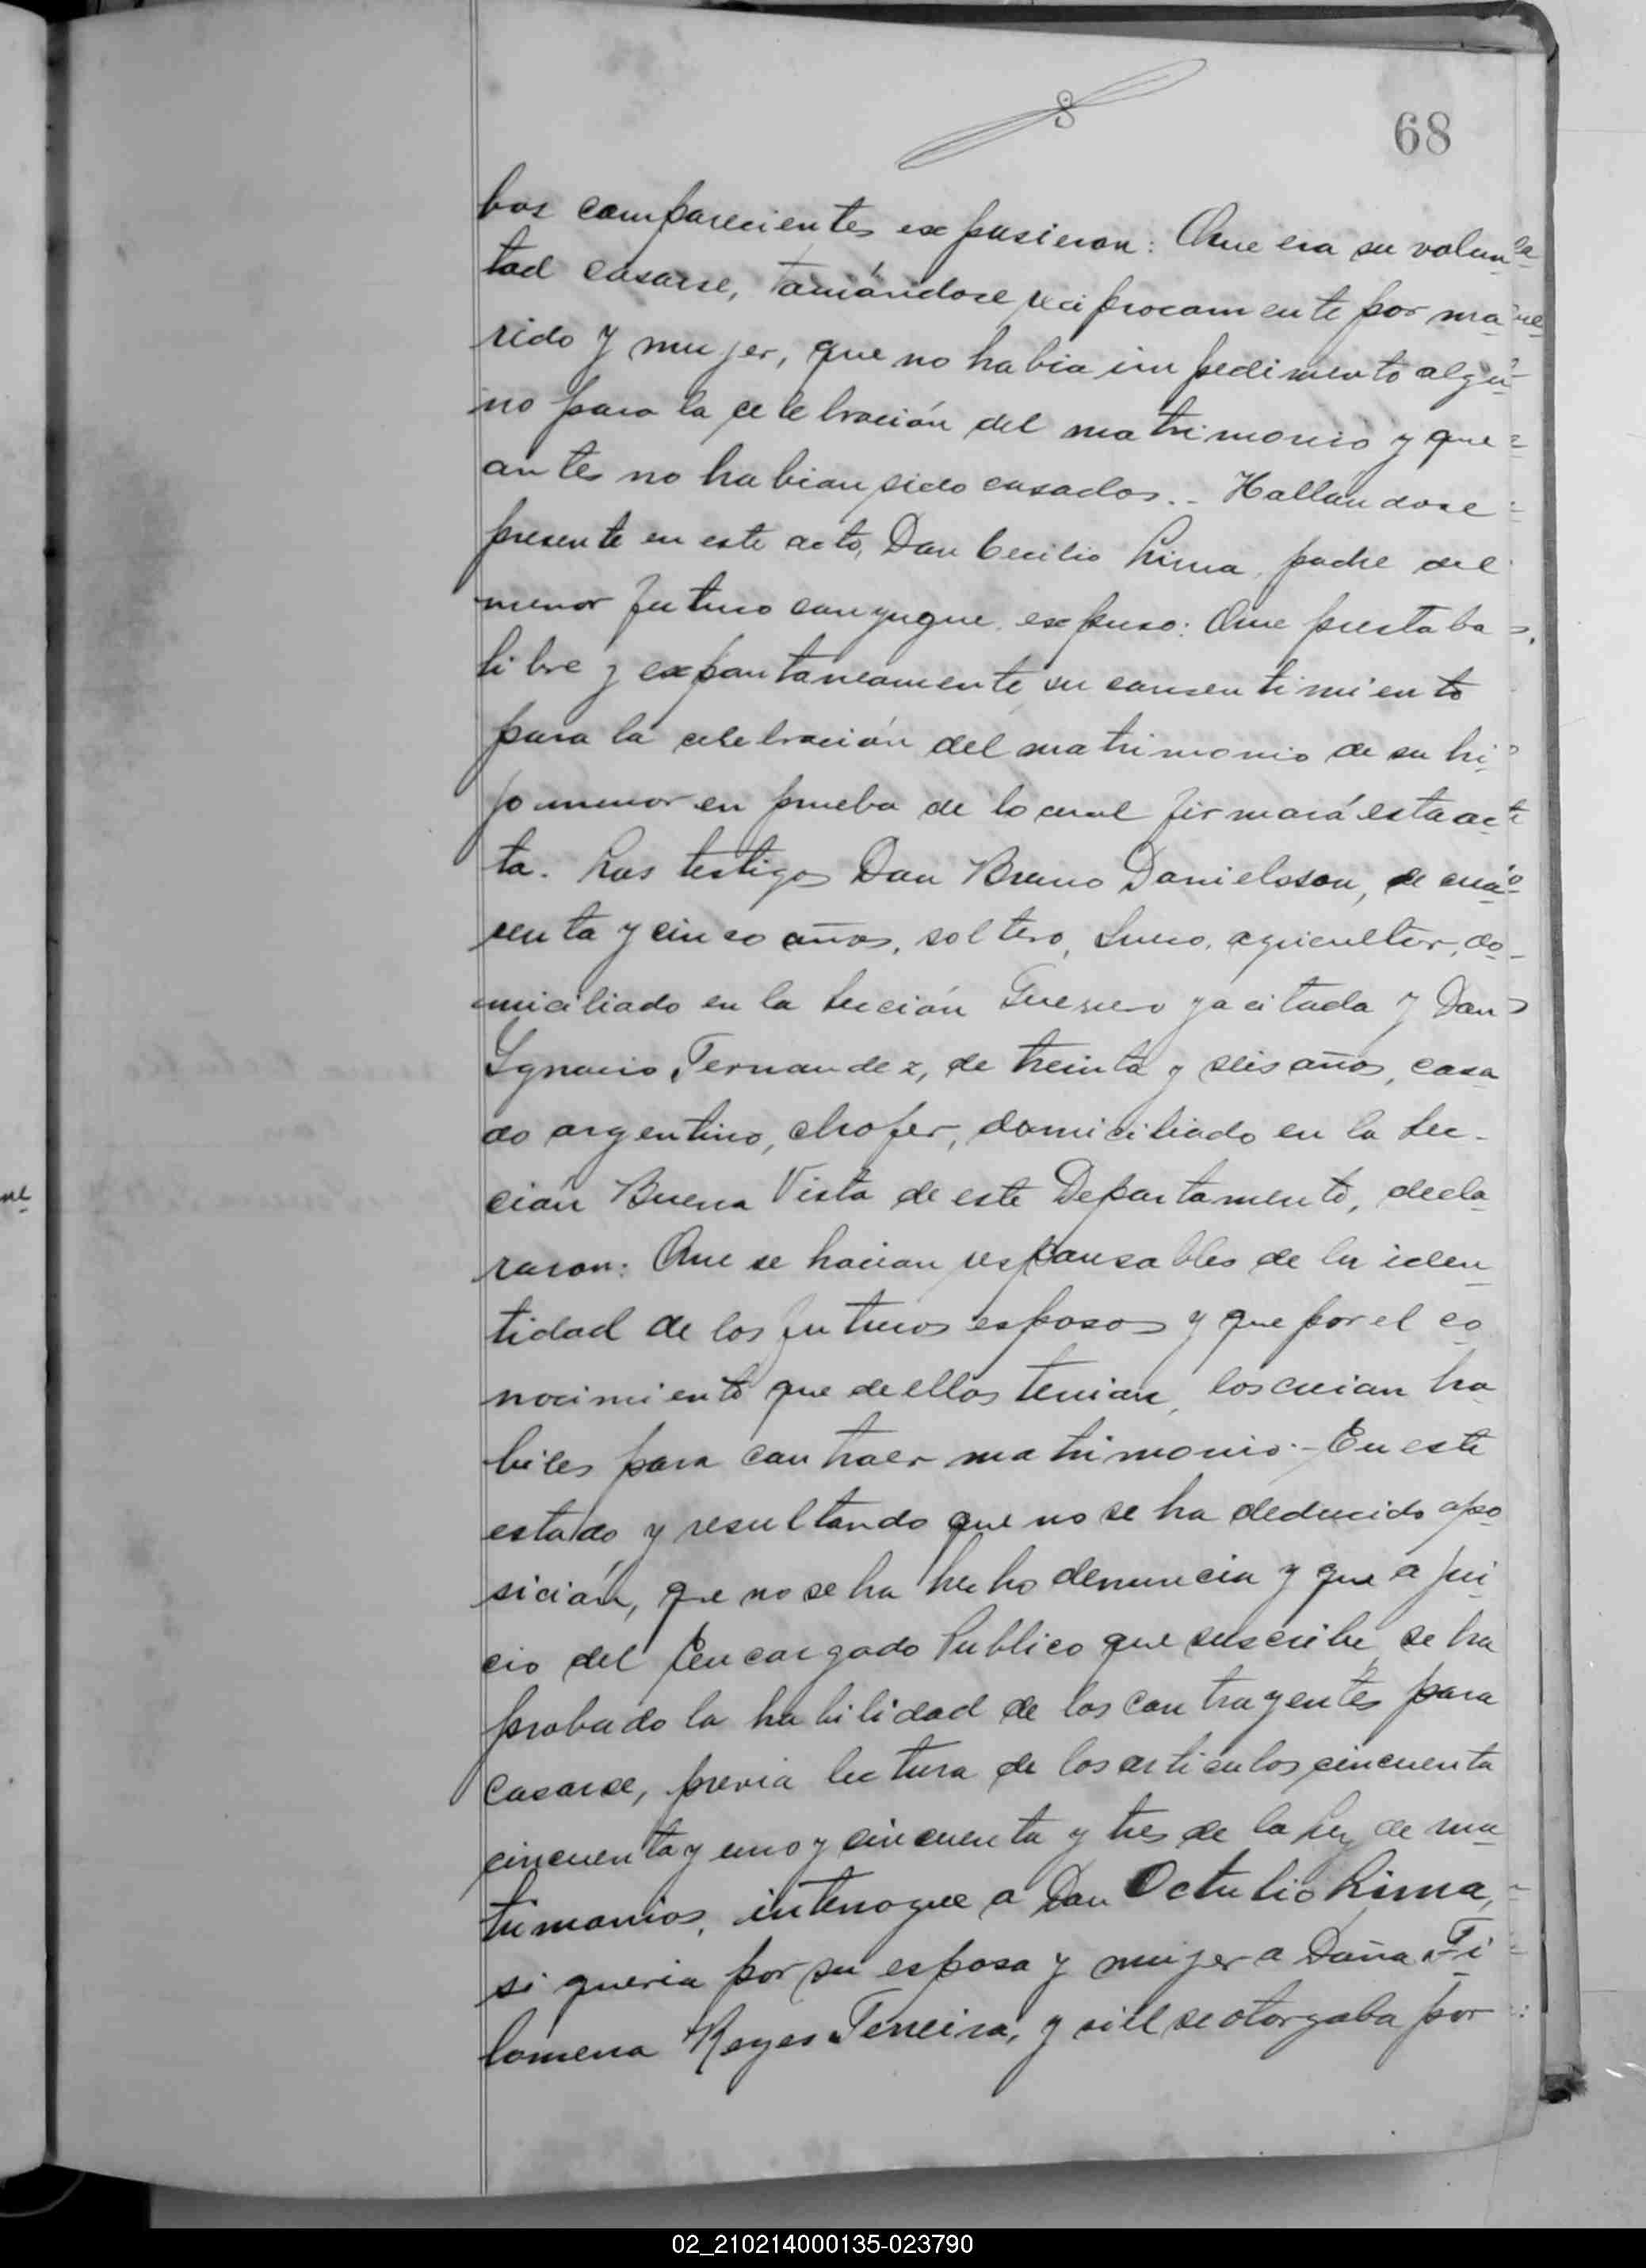 68
bos comparecientes expusieron: Que era su volun
tad casarse, tomándose reciprocamente por ma
rido y mujer, que no habia impedimento algu
no para la celebración del matrimonio y que
antes no habian sido casados.- Hallandose
presente en este acto, Don Cecilio Lima, padre del
menor futuro conyugue, expuso: Que prestaba
libre y expontaneamente su consentimiento
para la celebración del matrimonio de su hi
jo menor en prueba de lo cual firmará esta ac
ta. Los testigos Don Bruno Danielsson, de cua
renta y cinco años, soltero, Sueco, agricultor, do
miciliado en la Sección Guerrero ya citada y Don
Ygnacio Fernandez, de treinta y seis años, casa
do argentino, chofer, domiciliado en la Sec-
ción Buena Vista de este Departamento, decla
raron: Que se hacian responsables de la iden
tidad de los futuros esposos y que por el co
nocimiento que de ellos tenian, los creian ha
biles para contraer matrimonio.- En este
estado y resultando que no se ha deducido opo
sición, que no se ha hecho denuncia y que a jui
cio del Encargado Publico que suscribe, se ha
probado la habilidad de los contrayentes para
casarse, previa lectura de los articulos cincuenta
cincuenta y uno y cincuenta y tres de la Ley de ma
trimonios, interrogue a Don Octulio Lima,
si queria por su esposa y mujer a Doña Fi
lomena Reyes Ferreira, y si él se otorgaba por
02_210214000135-023790